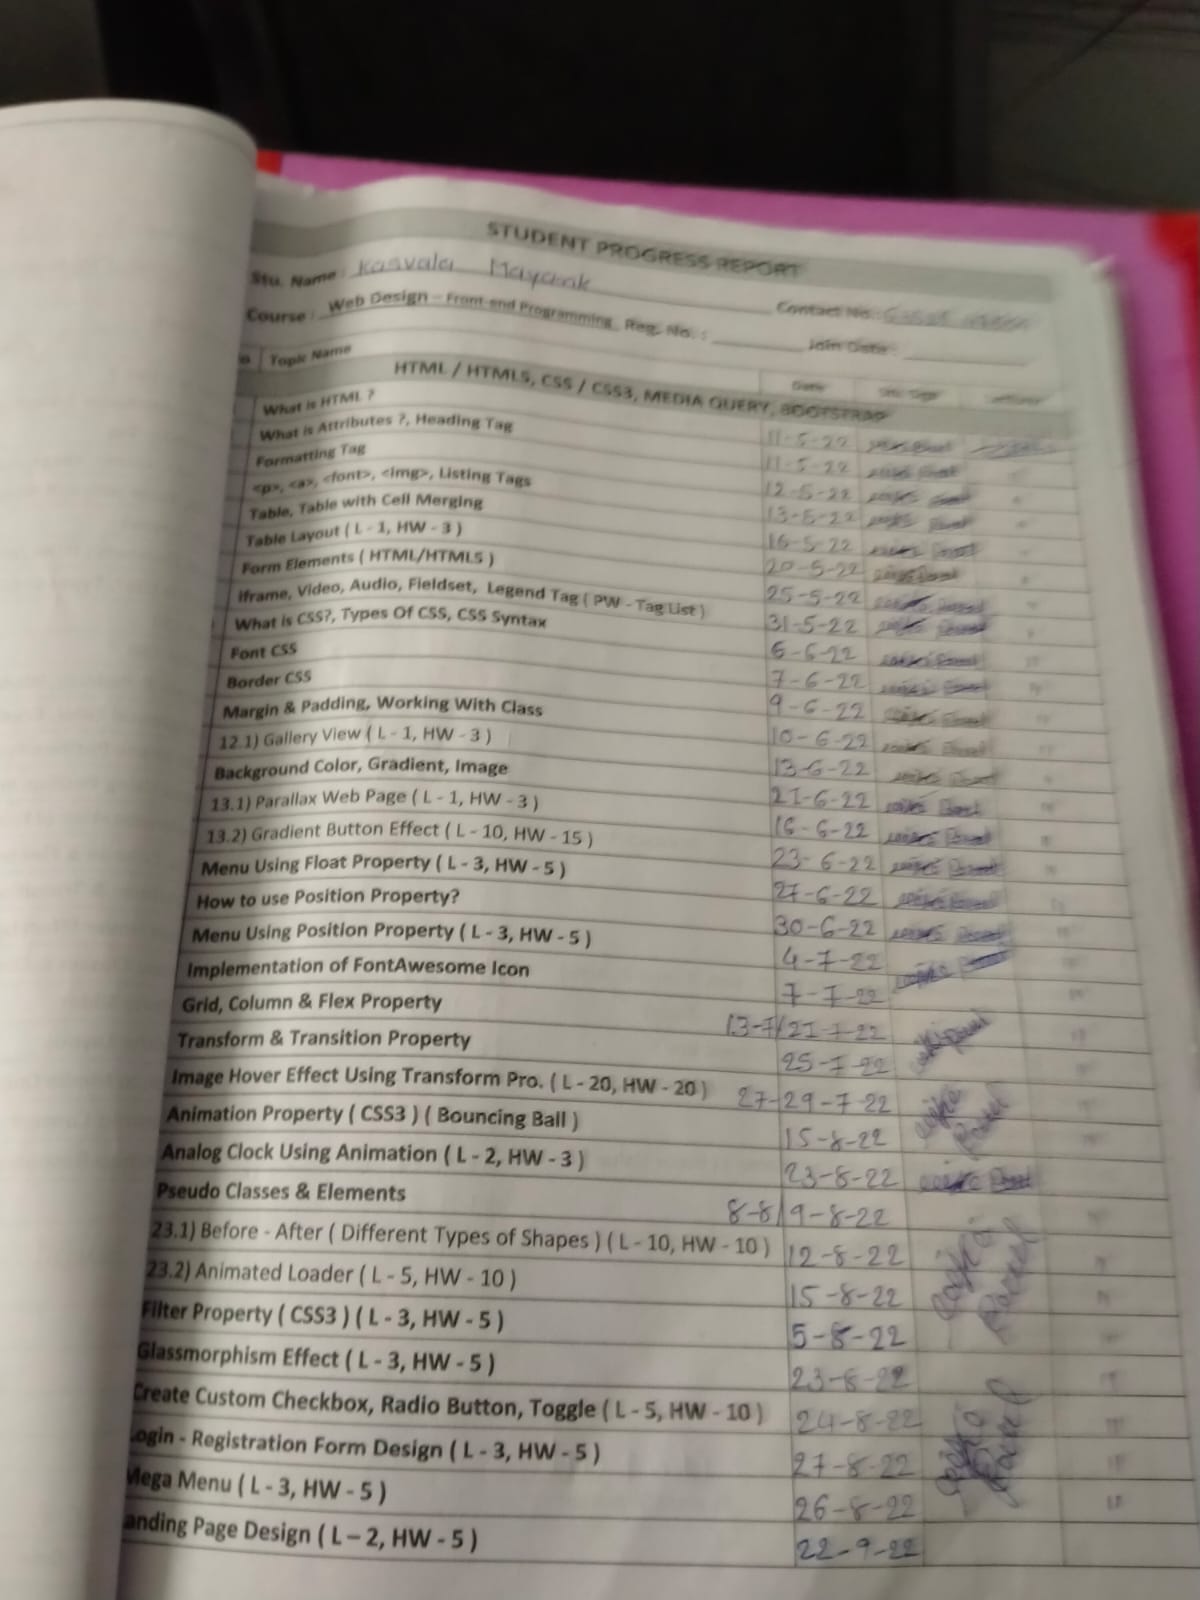 STUDENT PROGRESS REPORT
Stu. Name : Kasvala Mayank Contact No.:
Course : Web Design – Front-end Programming Reg. No. : Join Date :
Topic Name Date
HTML / HTML5, CSS / CSS3, MEDIA QUERY, BOOTSTRAP
What is HTML ? 11-5-22
What is Attributes ?, Heading Tag 11-5-22
Formatting Tag 12-5-22
<p>, <a>, <font>, <img>, Listing Tags 13-5-22
Table, Table with Cell Merging 16-5-22
Table Layout ( L - 1, HW - 3 ) 20-5-22
Form Elements ( HTML/HTML5 ) 25-5-22
Iframe, Video, Audio, Fieldset, Legend Tag ( PW - Tag List ) 31-5-22
What is CSS?, Types Of CSS, CSS Syntax 6-6-22
Font CSS 7-6-22
Border CSS 9-6-22
Margin & Padding, Working With Class 10-6-22
12.1) Gallery View ( L - 1, HW - 3 ) 13-6-22
Background Color, Gradient, Image 21-6-22
13.1) Parallax Web Page ( L - 1, HW - 3 ) 16-6-22
13.2) Gradient Button Effect ( L - 10, HW - 15 ) 23-6-22
Menu Using Float Property ( L - 3, HW - 5 ) 27-6-22
How to use Position Property? 30-6-22
Menu Using Position Property ( L - 3, HW - 5 ) 4-7-22
Implementation of FontAwesome Icon 7-7-22
Grid, Column & Flex Property 13-7/21-7-22
Transform & Transition Property 25-7-22
Image Hover Effect Using Transform Pro. ( L - 20, HW - 20 ) 27-29-7-22
Animation Property ( CSS3 ) ( Bouncing Ball ) 15-8-22
Analog Clock Using Animation ( L - 2, HW - 3 ) 23-8-22
Pseudo Classes & Elements 8-8/9-8-22
23.1) Before - After ( Different Types of Shapes ) ( L - 10, HW - 10 ) 12-8-22
23.2) Animated Loader ( L - 5, HW - 10 ) 15-8-22
Filter Property ( CSS3 ) ( L - 3, HW - 5 ) 5-8-22
Glassmorphism Effect ( L - 3, HW - 5 ) 23-8-22
Create Custom Checkbox, Radio Button, Toggle ( L - 5, HW - 10 ) 24-8-22
ogin - Registration Form Design ( L - 3, HW - 5 ) 27-8-22
Mega Menu ( L - 3, HW - 5 ) 26-8-22
anding Page Design ( L – 2, HW - 5 ) 22-9-22